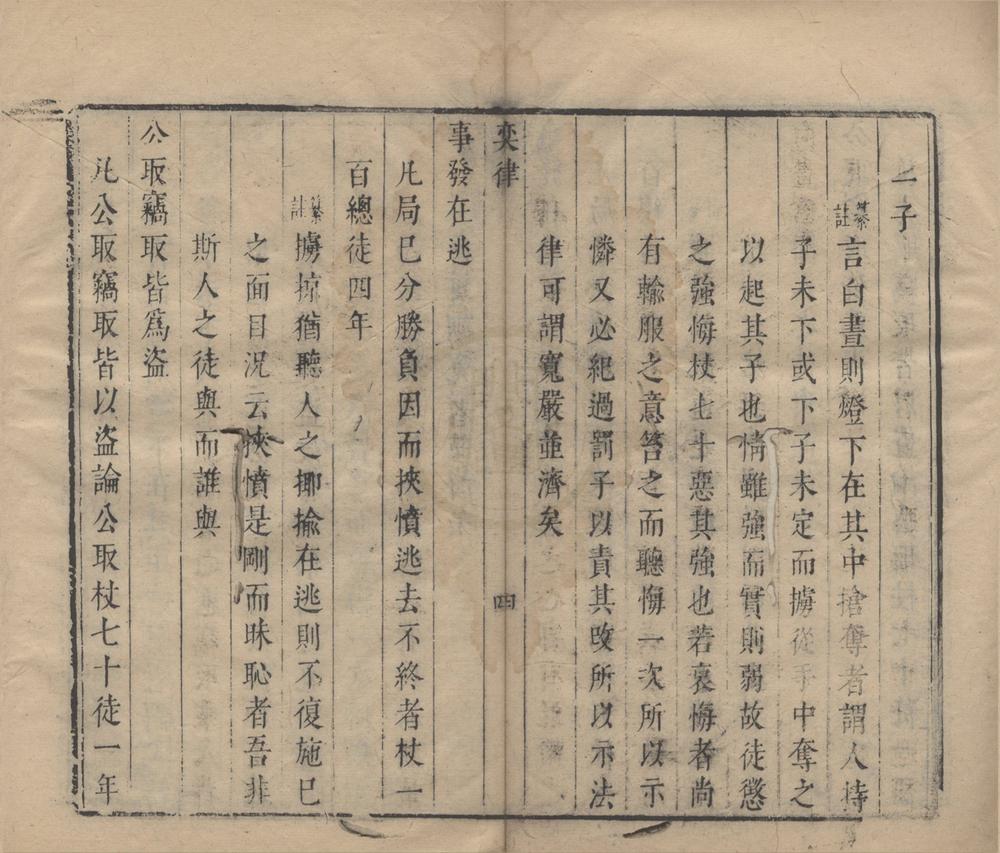 二子
纂註言白晝則燈下在其中搶奪者謂人持
子未下或下子未定而擄從手中奪之
以起其子也情雖強而實則弱故徒懲
之強悔杖七十惡其強也若哀悔者尚
有輸服之意笞之而聽悔一次所以示
憐又必紀過罰子以責其改所以示法
律可謂寬嚴並濟矣
奕律
四
事發在逃
凡局已分勝負因而挾憤逃去不終者杖一
百總徒四年
纂註擄掠猶聽人之揶揄在逃則不復施已
之面目況云挾憤是剛而昧恥者吾非
斯人之徒與而誰與
公取竊取皆爲盜
凡公取竊取皆以盜論公取杖七十徒一年